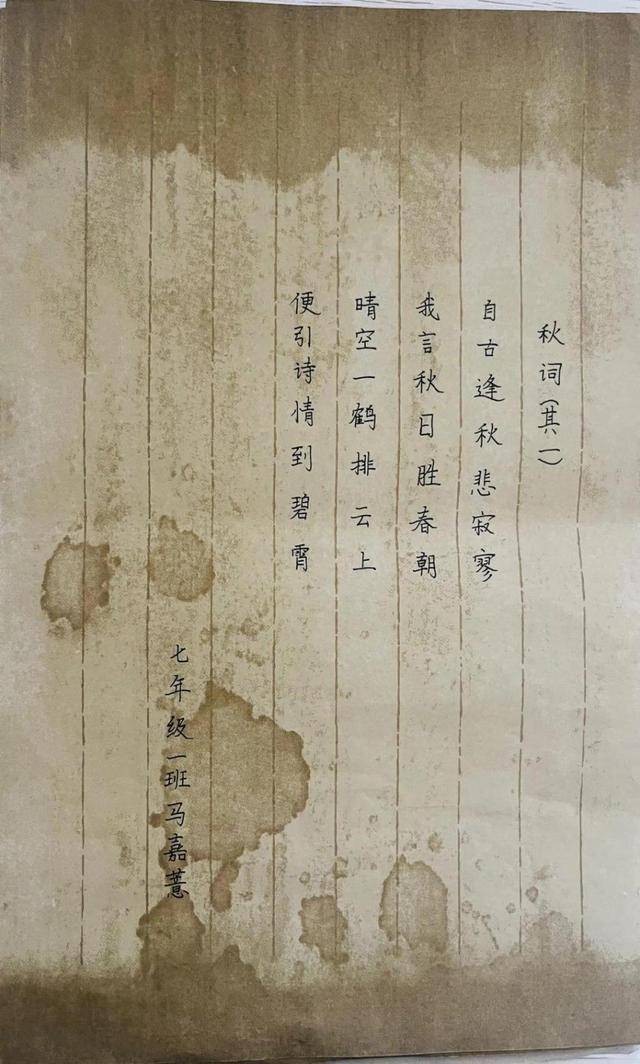 秋词(其一)
自古逢秋悲寂寥
我言秋日胜春朝
晴空一鹤排云上
便引诗情到碧霄
七年级一班马嘉薏